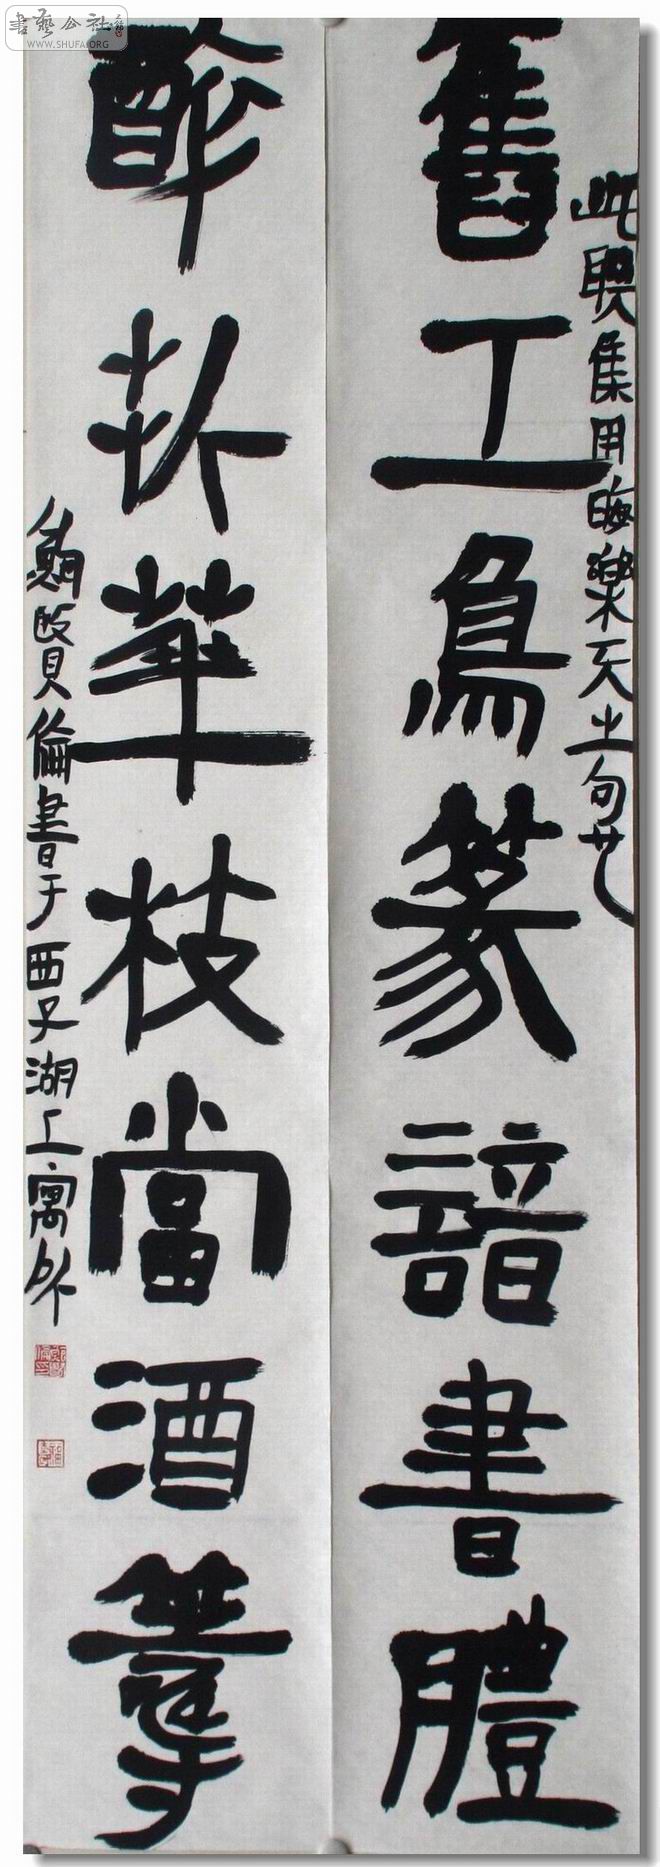 書藝公社
WWW.SHUFA.ORG
此聯集用晦樂天之句也
舊工鳥篆諳書體
醉折華枝當酒籌
鮑賢倫書于西子湖上寓所